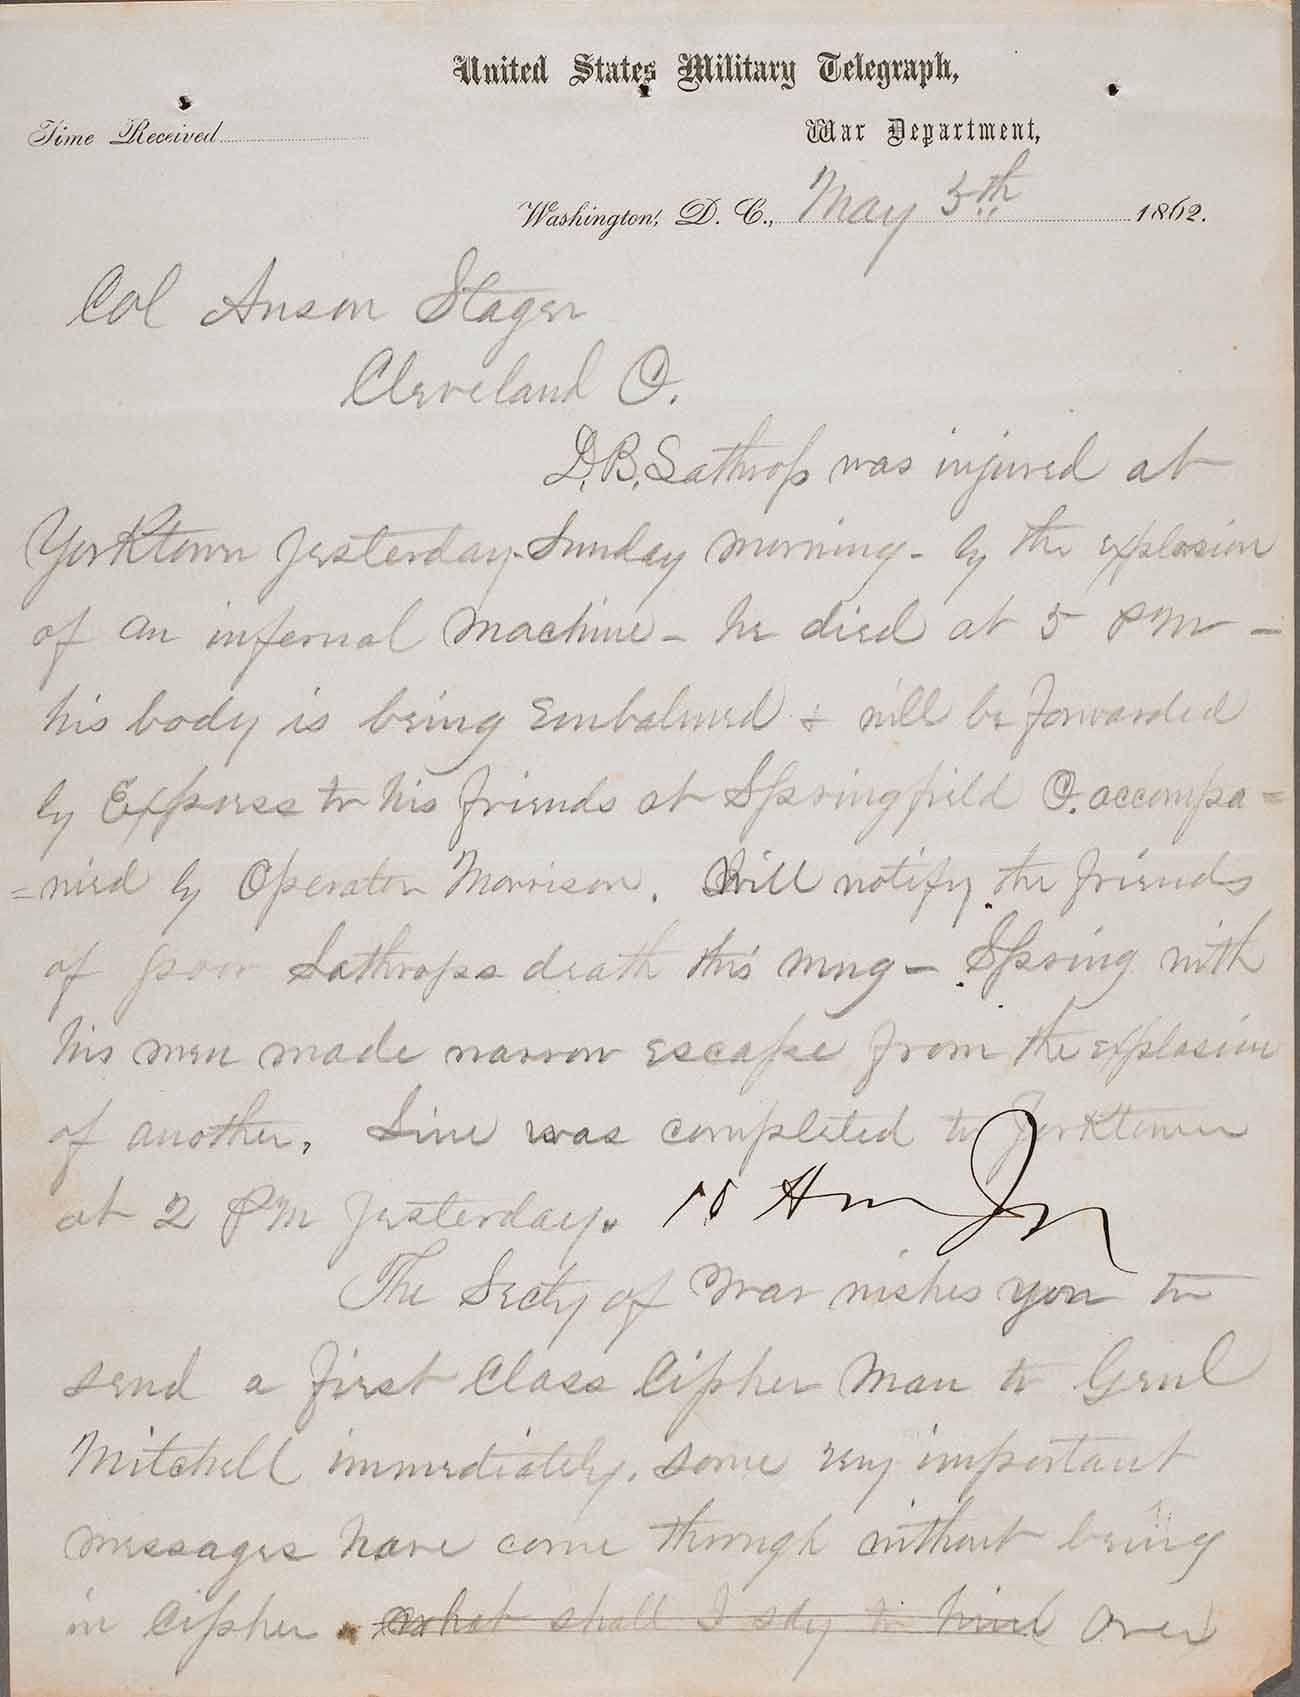 United States Military Telegraph,
Time Received
War Department,
Washington, D. C., May 5th 1862.
Col Anson Stager
Cleveland O.
D.B. Lathrop was injured at
Yorktown yesterday - Sunday morning - by the explosion
of an infernal machine - he died at 5 PM -
his body is being embalmed & will be forwarded
by Express to his friends at Springfield O. accompa=
=nied by Operator Morrison. Will notify the friends
of poor Lathrops death this mng - Spring with
his men made narrow escape from the explosion
of another. Line was completed to Yorktown
at 2 PM yesterday. 10 Am
The Secty of War wishes you to
send a first Class Cipher Man to Genl
Mitchell immediately. some very important
messages have come through without being
in Cipher. what shall I say to him Over